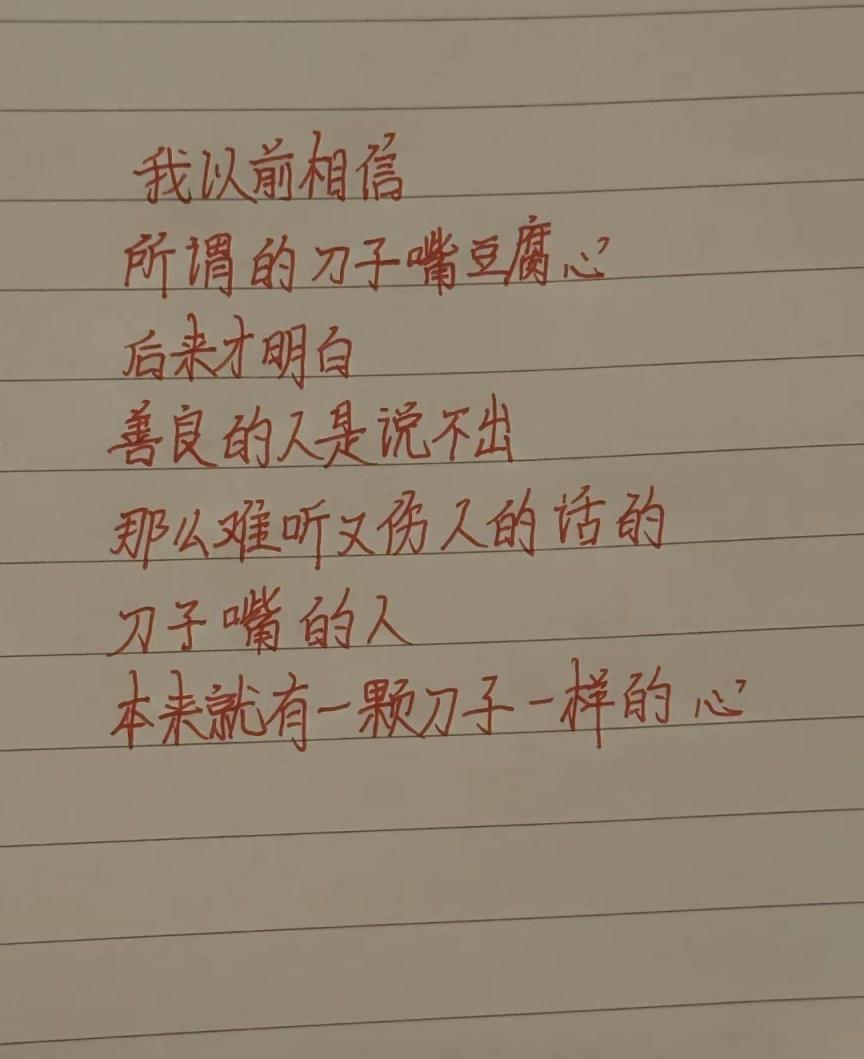 我以前相信
所谓的刀子嘴豆腐心
后来才明白
善良的人是说不出
那么难听又伤人的话的
刀子嘴的人
本来就有一颗刀子一样的心